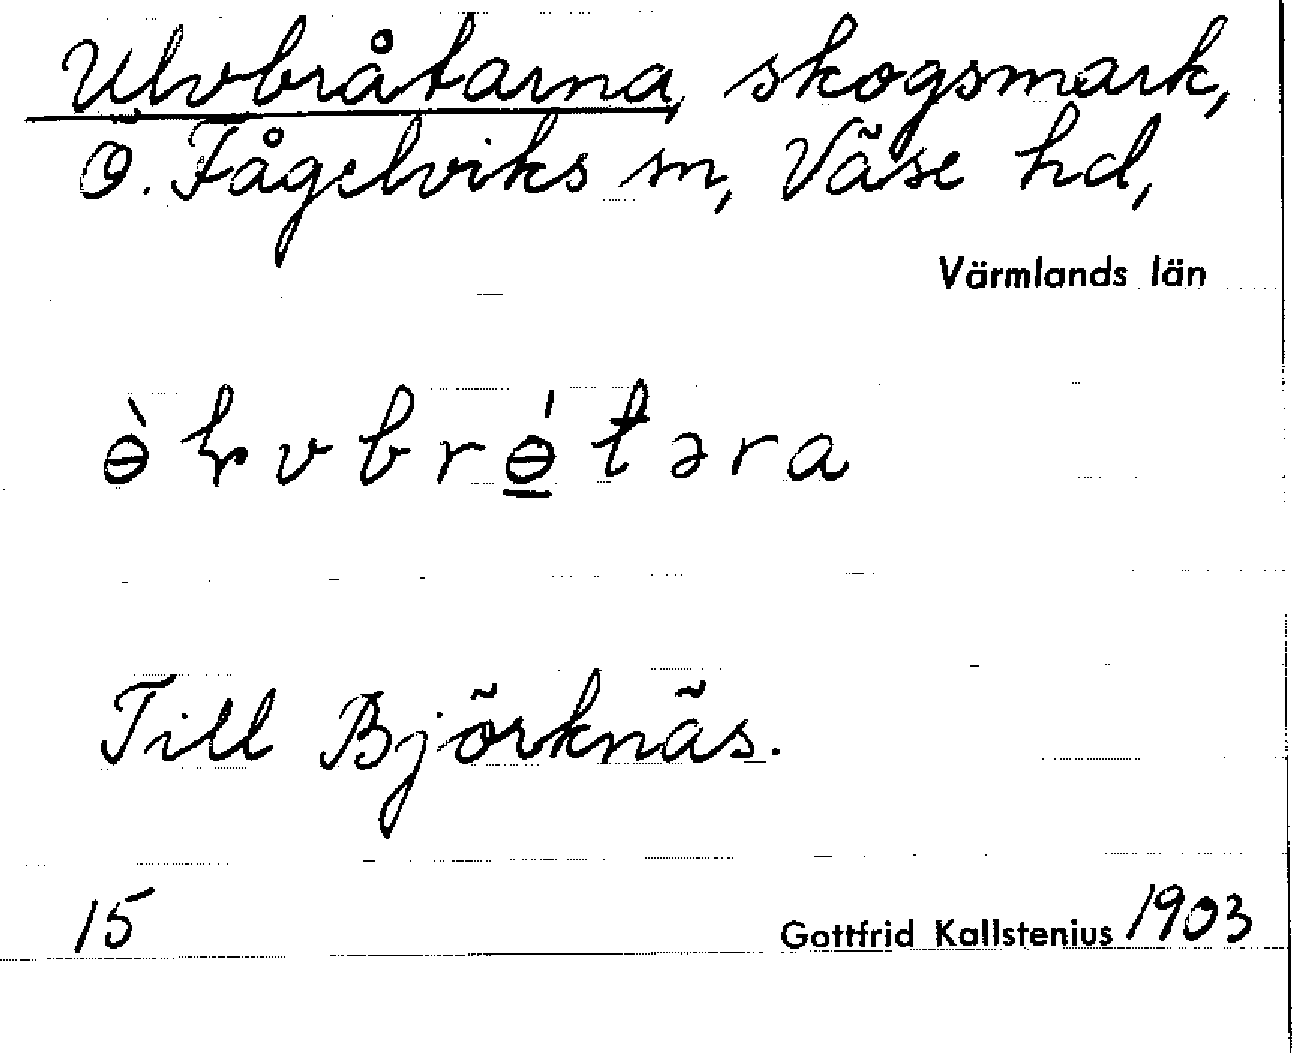 Ulvbråtarna, skogsmark,
Ö. Fågelviks sn, Väse hd,
Värmlands län
ɵ̀ɽvbrɵ̲́təra
Till Björknäs.
15
Gottfrid Kallstenius 1903